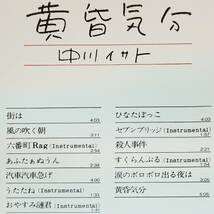 黄昏気分
中川イサト
街は
4:03
風の吹く朝
3:11
六番町 Rag (Instrumental)
2:54
あふたぁぬうん
2:38
汽車汽車急げ
4:00
うたたね (Instrumental)
0:41
おやすみ漣君 (Instrumental)
ひなたぼっこ
4:03
セブンブリッジ (Instrumental)
2:57
殺人事件
2:21
すくらんぶる (Instrumental)
1:54
涙のボロボロ出る夜は
黄昏気分
5:05